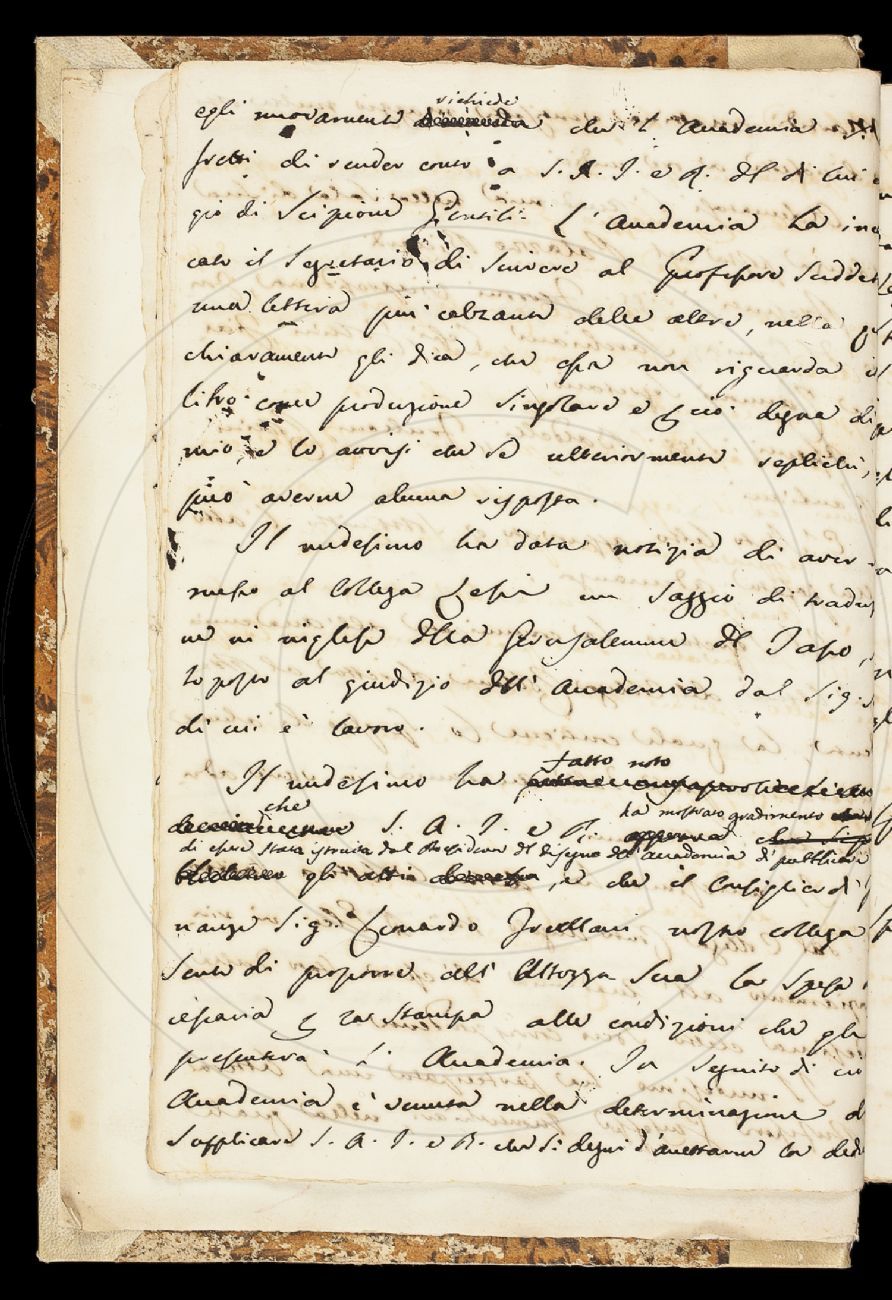 egli nuovamente richiede che l'Accademia
fretti di render conto a S. A. I. e R. del di lui
gio di Scipione Gentili. L'Accademia ha in
cato il Segretario di scrivere al Professore Suddet
una lettera più calzante delle altre, nella
chiaramente gli dica, che essa non riguarda il
libro come produzione singolare e per ciò degna di
mio, e lo avvisi che se ulteriormente replichi,
può averne alcuna risposta.
Il medesimo ha data notizia di aver
messo al Collega Lessi un Saggio di traduz
ne in inglese della Gerusalemme del Tasso,
toposto al giudizio dell'Accademia dal Sig.
di cui è lavoro.
Il medesimo ha fatto noto
che S. A. I. e R. ha mostrato gradimento
di essere stata istruita dal Presidente del disegno dell'Accademia di pubblicare
gli atti, e che il Consigliere di
nanze Sig. Leonardo Frullani nostro collega
sente di proporre all'Altezza Sua la spesa
cessaria per la stampa alle condizioni che gli
presenterà L'Accademia. In seguito di ciò
Accademia è venuta nella determinazione d
supplicare S. A. I. e R. che si degni d'accettarne la ded